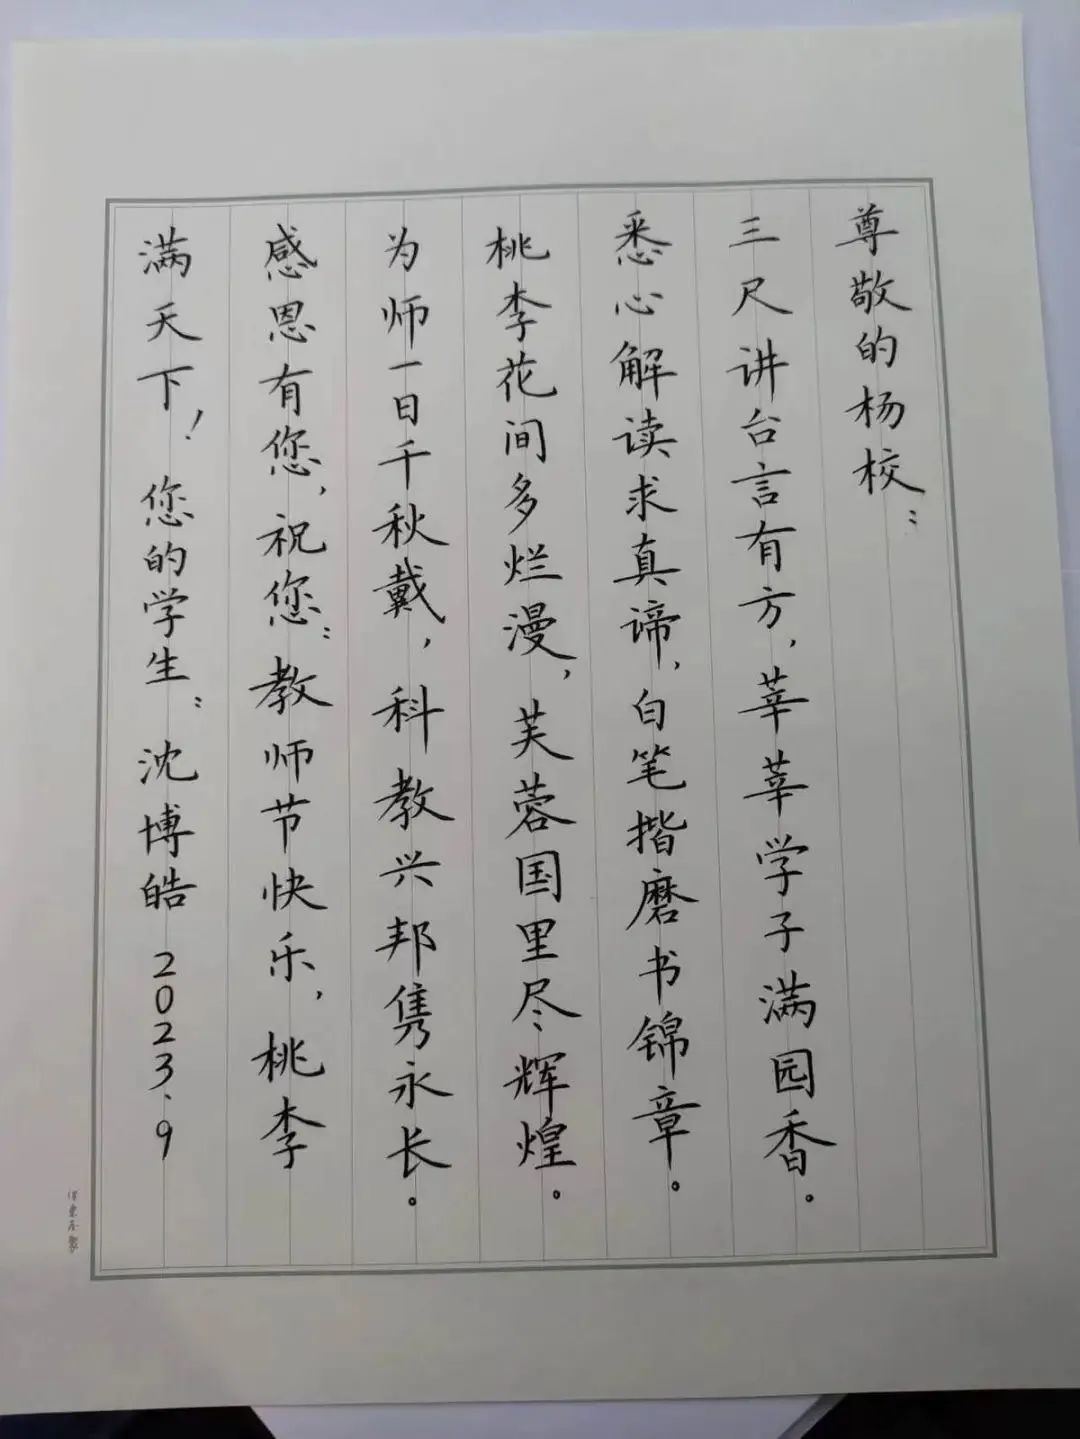 尊敬的杨校：
三尺讲台言有方，莘莘学子满园香。
悉心解读求真谛，白笔揩磨书锦章。
桃李花间多烂漫，芙蓉国里尽辉煌。
为师一日千秋戴，科教兴邦隽永长。
感恩有您，祝您：教师节快乐，桃李
满天下！您的学生：沈博皓2023.9